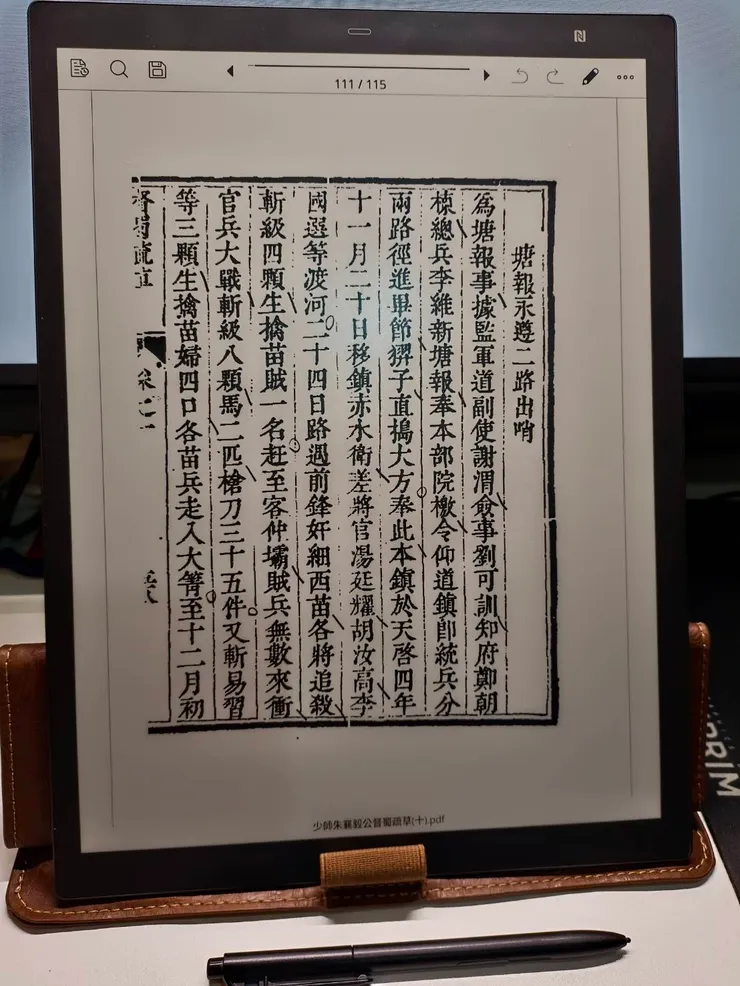 111 / 115
塘報永遵二路出哨
為塘報事據監軍道副使謝渭僉事劉可訓知府鄭朝
棟總兵李維新塘報奉本部院檄令仰道鎮即統兵分
兩路徑進畢節猓子直搗大方奉此本鎮於天啓四年
十一月二十日移鎮赤水衛差將官湯廷耀胡汝高李
國選等渡河二十四日路遇前鋒奸細西苗各將追殺
斬級四顆生擒苗賊一名赶至客仲壩賊兵無數來衝
官兵大戰斬級八顆馬二匹槍刀三十五件又斬易習
等三顆生擒苗婦四口各苗兵走入大箐至十二月初
督蜀疏草
少師朱襄毅公督蜀疏草(十).pdf